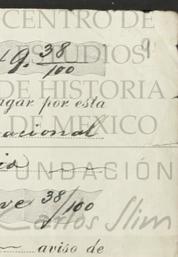 CENTRO DE
ESTUDIOS
19. 38/100 9
DE HISTORIA
agar por esta
DE MEXICO
acional
FUNDACIÓN
ve 38/100
Carlos Slim
aviso de